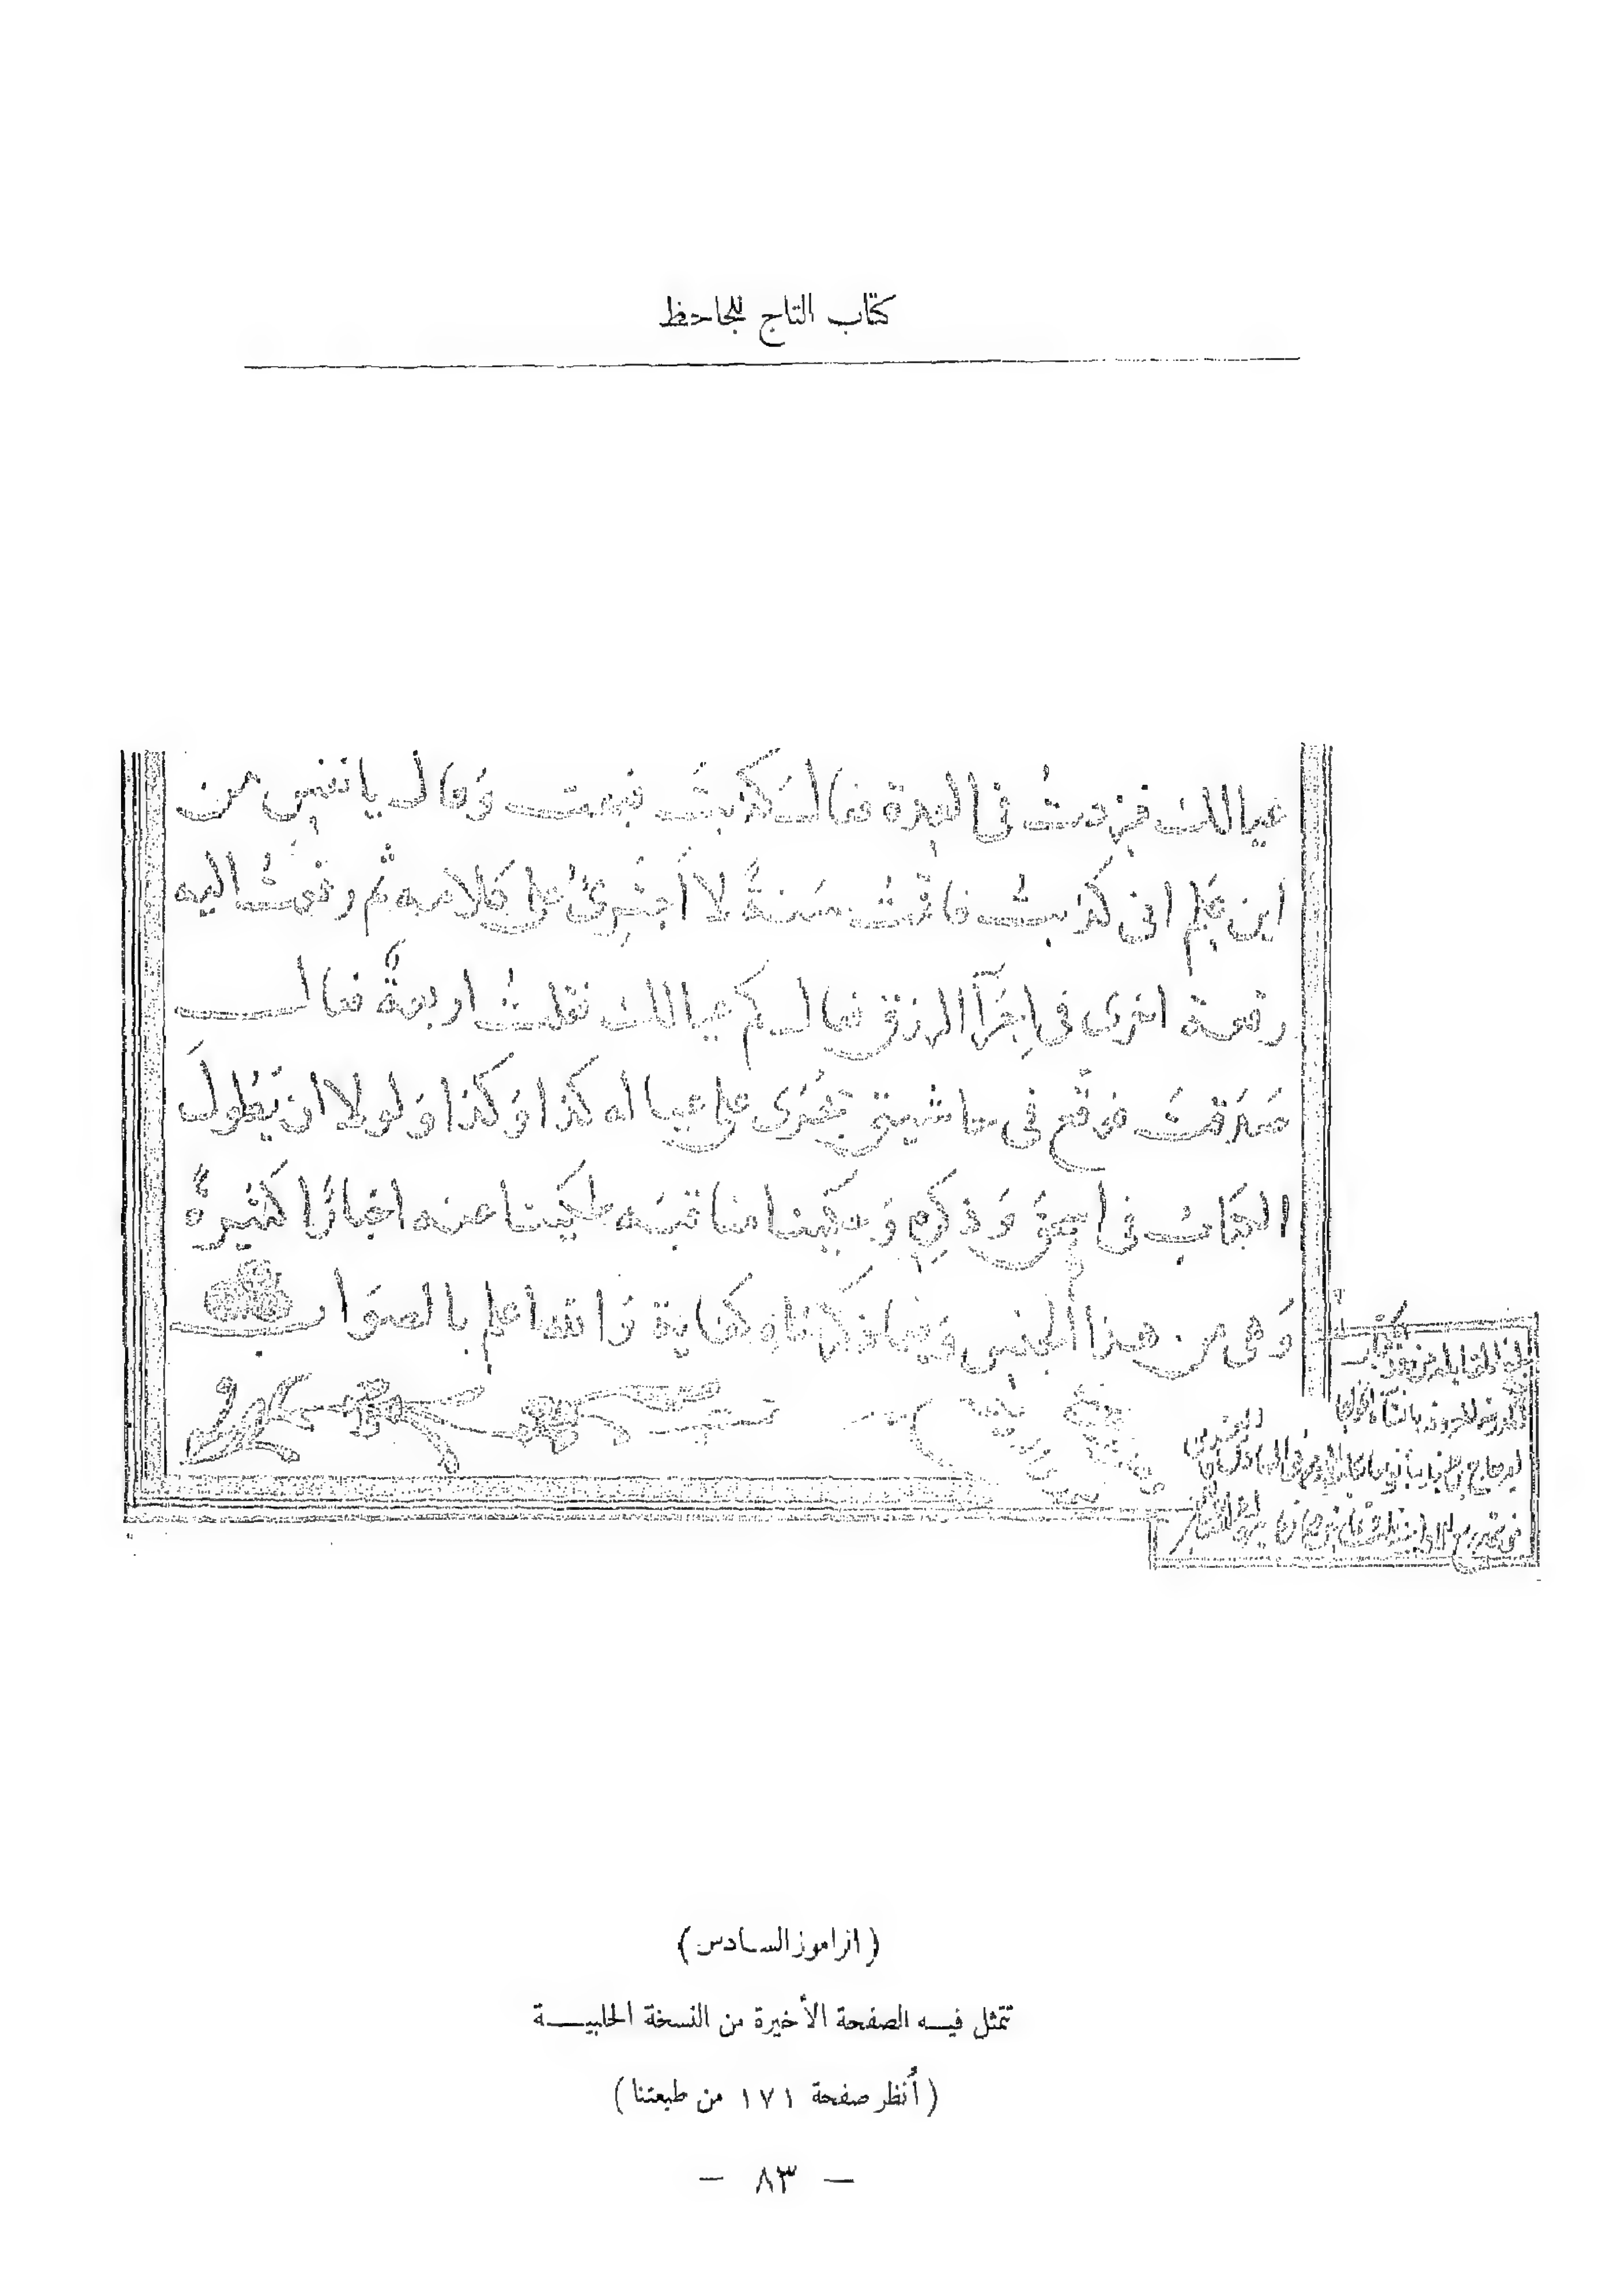 كتاب التاج للجاحظ
عيالك فزدتُ فى العدة فقال كذبتَ فبهت وَقال يا نفس من
اين علم انى كذبت فاقمتُ سَنةً لا اَجتَرِئُ على كلامه ثم رفعتُ اليه
رقعة اخرى فى اِجرَآ الرزق فقال كم عيالك فقلتُ اربعةٌ فقال
صَدَقتَ فوقّع فى حاشيتى يجُرَى على عياله كذا وَكذا وَلولا ان يَطولَ
الكتابُ فى وَذكرِهِ وَ مناقبَه لحكينا عنه اخبارًا كثيرةً
وَهى من هذا الجنس وَفيما ذكرناه كفاية وَالله اعلم بالصوَاب
(الراموز السادس)
تتمثل فيه الصفحة الأخيرة من النسخة الحلبية
(أنظر صفحة ١٧١ من طبعتنا)
— ٨٣ —